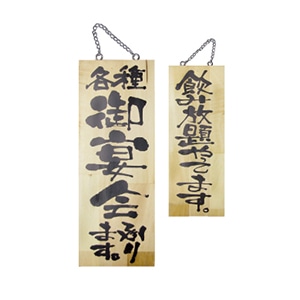 各種
御宴会承り
ます。
飲み放題やってます。